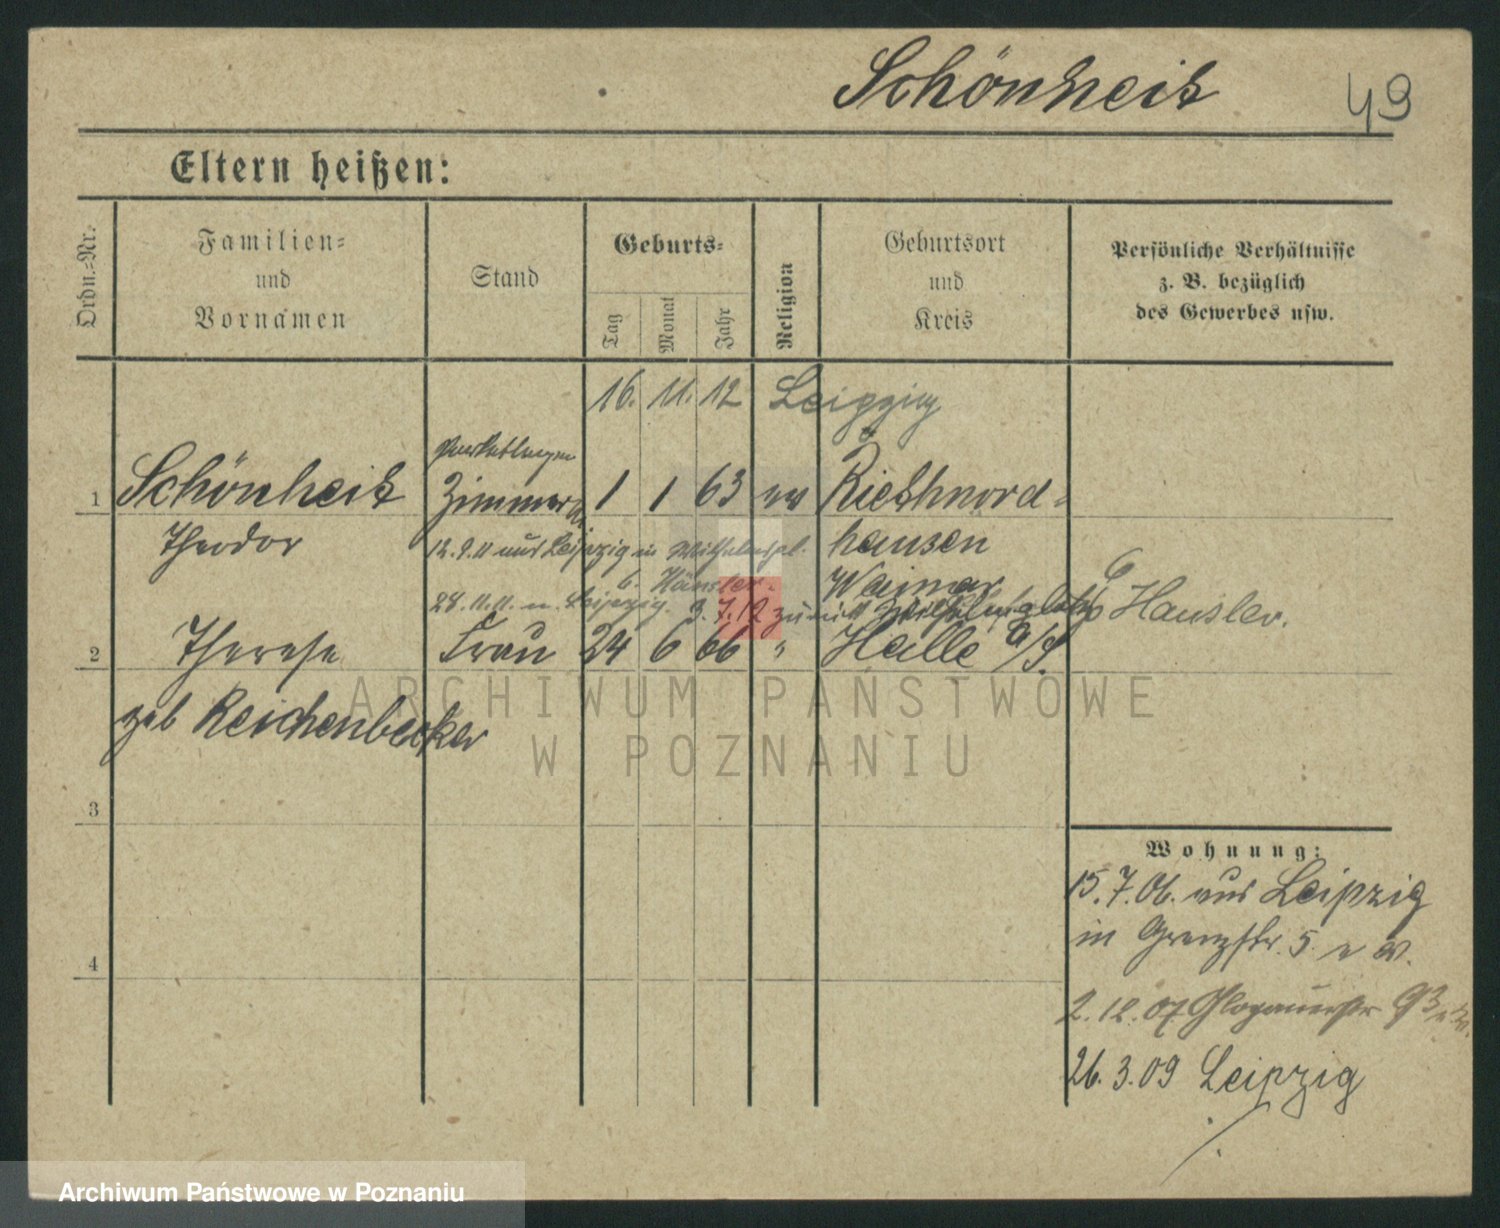 Schönheit
49
Eltern heißen:
Ordn.-Nr.
Familien-
und
Vornamen
Stand
Geburts-
Tag
Monat
Jahr
Religion
Geburtsort
und
Kreis
Persönliche Verhältnisse
z. B. bezüglich
des Gewerbes usw.
16. 11. 12 Leipzig
1 Schönheit 1 1 63 ev Riethnord-
Theodor
12.9.11 aus Leipzig in Wilhelmspl. hausen
6. Häusler. Weimar
24.11.11. n. Leipzig. 3.7.12 zurück Wilhelmsplatz 6 Hausler.
2 Therese Frau 24 6 66 " Halle a/S.
geb Reichenbecker
ARCHIWUM PAŃSTWOWE
W POZNANIU
3
4
Wohnung:
15.7.06. aus Leipzig
in Grenzstr. 5
2.12.07 Glogauerstr 93
26.3.09 Leipzig
Archiwum Państwowe w Poznaniu